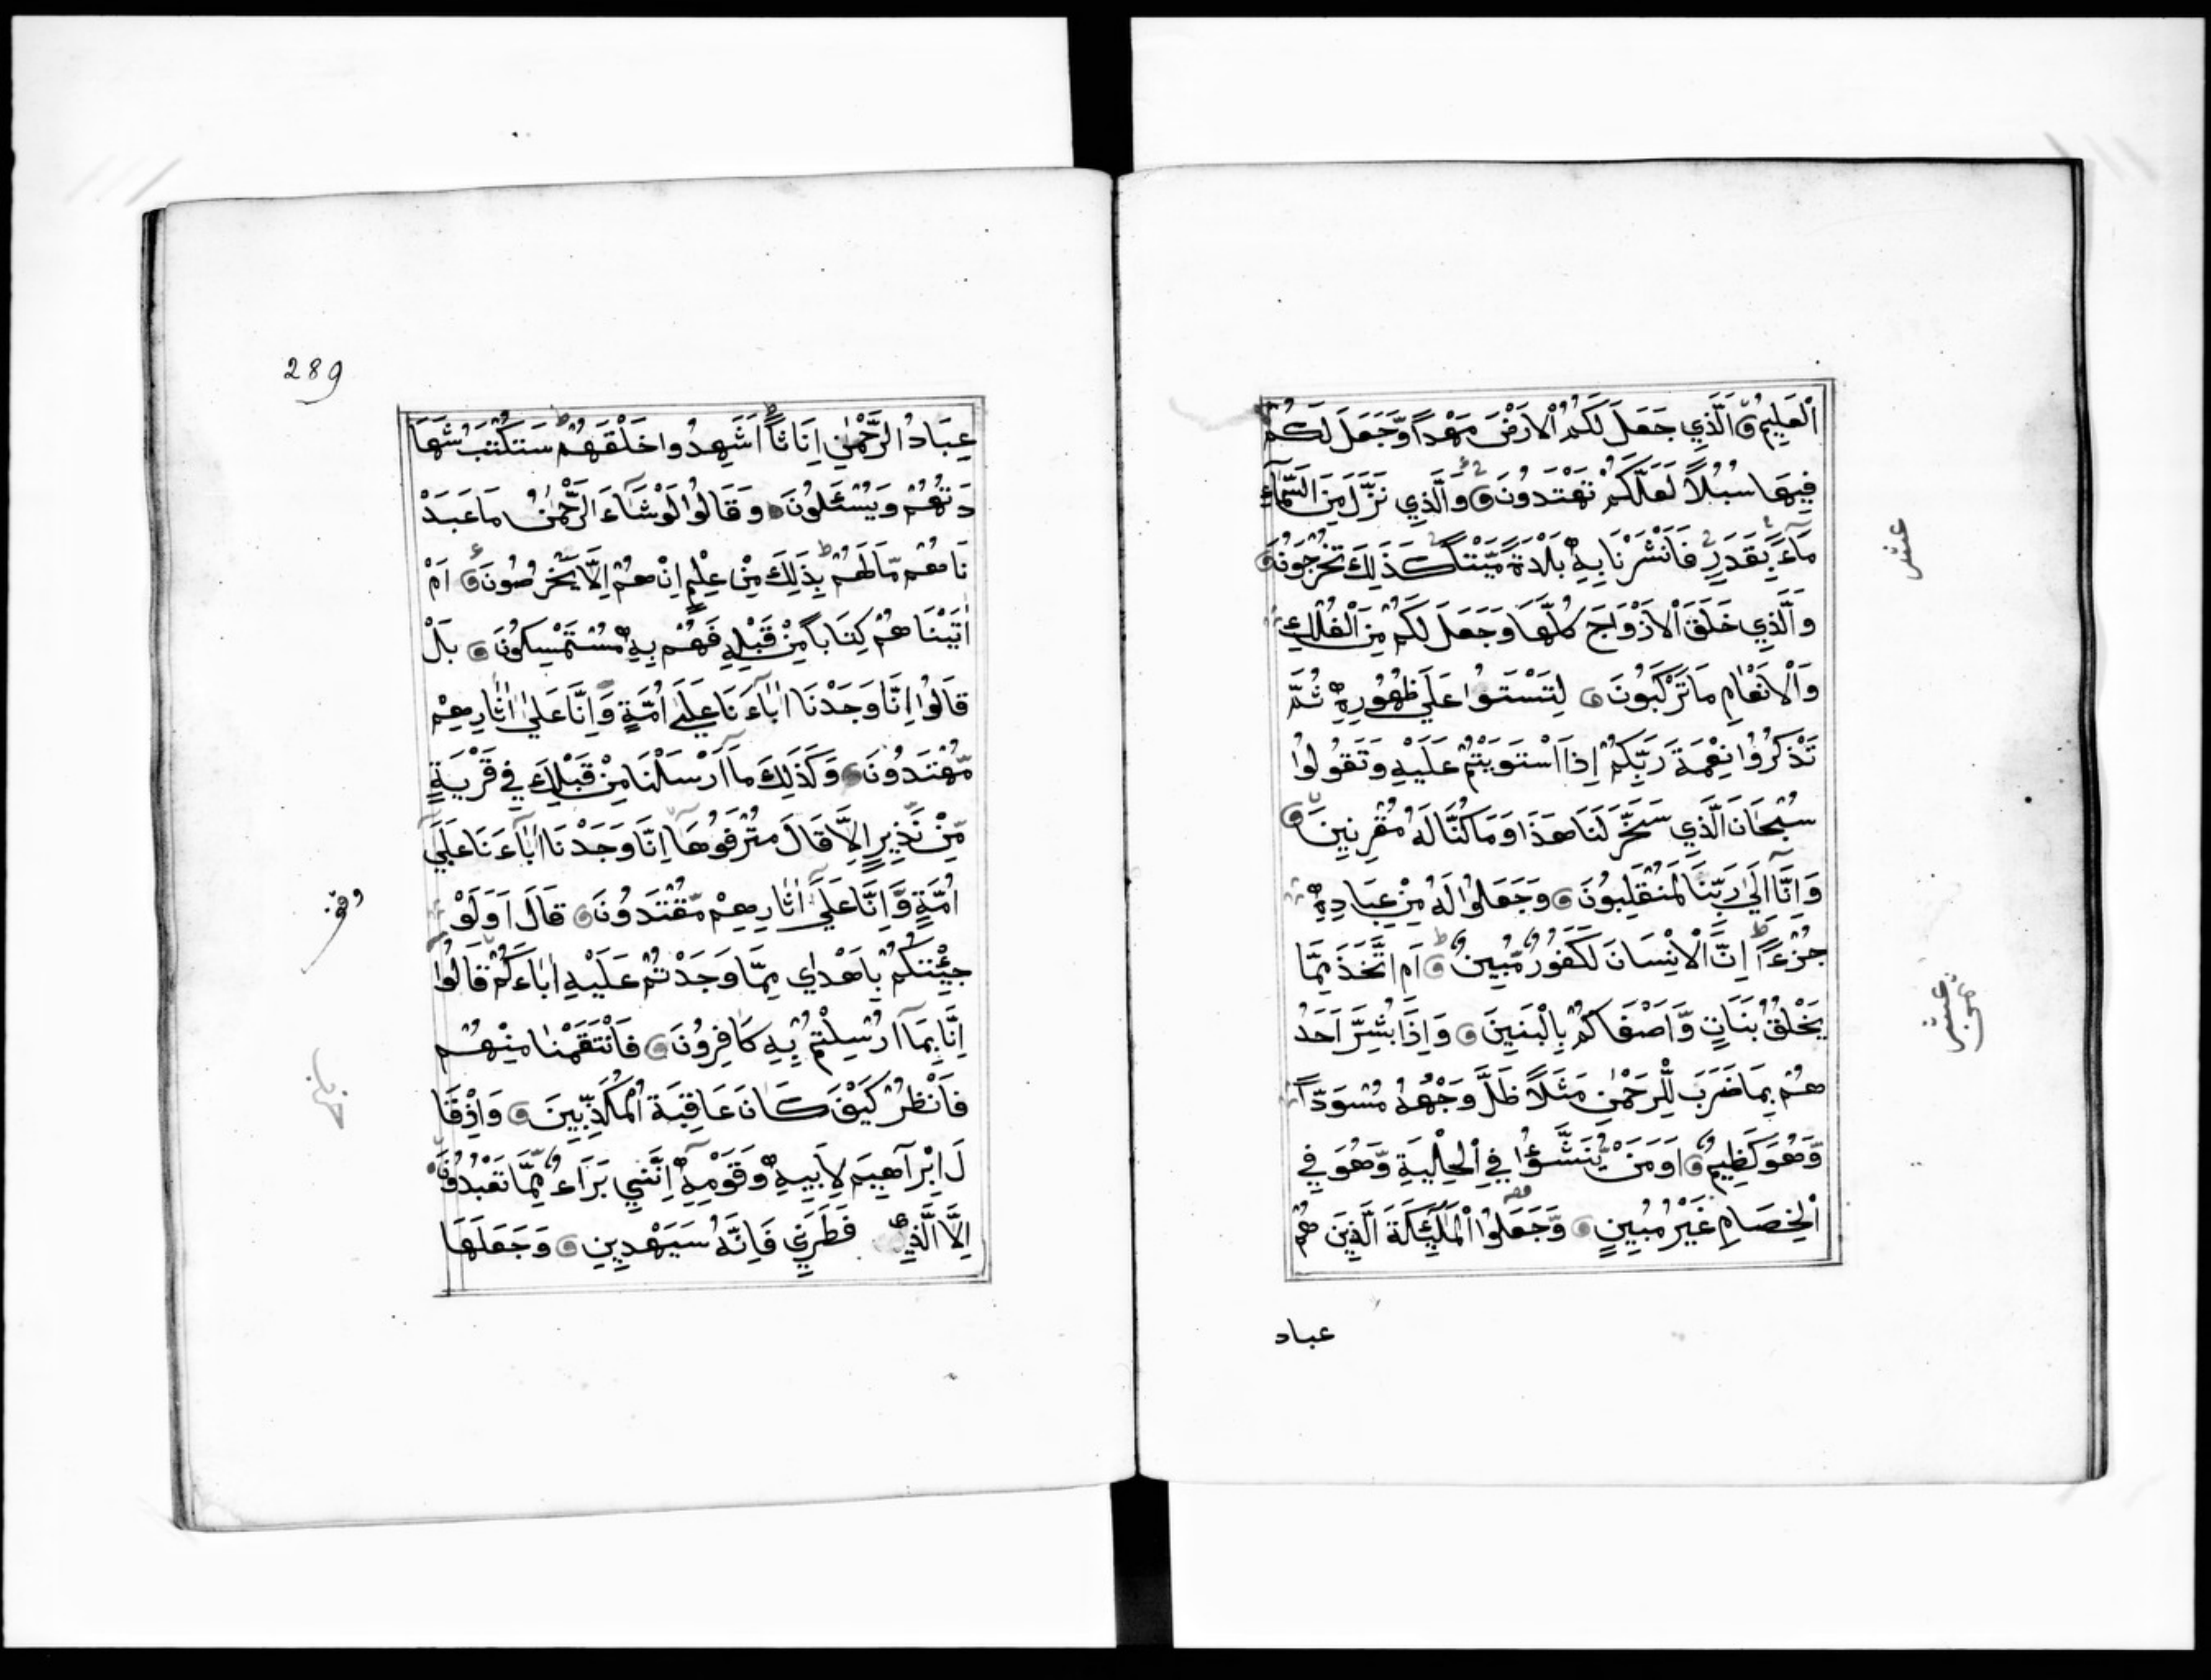 اَلْعَلِيمُ اَلَّذِي جَعَلَ لَكُمُ الْاَرْضَ مَهْداً وَّجَعَلَ لَكُمْ
فِيهَا سُبُلاً لَعَلَّكُمْ تَهْتَدُونَ وَالَّذِي نَزَّلَ مِنَ السَّمَاءِ
مَاءً بِقَدَرٍ فَاَنْشَرْنَا بِهِ بَلْدَةً مَّيْتاً كَذَلِكَ تُخْرَجُونَ
وَالَّذِي خَلَقَ الْاَزْوَاجَ كُلَّهَا وَجَعَلَ لَكُمْ مِنَ الْفُلْكِ
وَالْاَنْعَامِ مَا تَرْكَبُونَ لِتَسْتَوُا عَلَى ظُهُورِهِ ثُمَّ
تَذْكُرُوا نِعْمَةَ رَبِّكُمْ اِذَا اسْتَوَيْتُمْ عَلَيْهِ وَتَقُولُوا
سُبْحَانَ الَّذِي سَخَّرَ لَنَا هَذَا وَمَا كُنَّا لَهُ مُقْرِنِينَ
وَاِنَّا اِلَى رَبِّنَا لَمُنْقَلِبُونَ وَجَعَلُوا لَهُ مِنْ عِبَادِهِ
جُزْءًا اِنَّ الْاِنْسَانَ لَكَفُورٌ مُّبِينٌ اَمِ اتَّخَذَ مِمَّا
يَخْلُقُ بَنَاتٍ وَّاَصْفَاكُمْ بِالْبَنِينَ وَاِذَا بُشِّرَ اَحَدُ
هُمْ بِمَا ضَرَبَ لِلرَّحْمٰنِ مَثَلاً ظَلَّ وَجْهُهُ مُسْوَدّاً
وَّهُوَ كَظِيمٌ اَوَمَنْ يُّنَشَّؤُا فِي الْحِلْيَةِ وَهُوَ فِي
الْخِصَامِ غَيْرُ مُبِينٍ وَجَعَلُوا الْمَلٰئِكَةَ الَّذِينَ هُمْ
عباد
عشر
عشر
289
عِبَادُ الرَّحْمٰنِ اِنَاثاً اَشَهِدُوا خَلْقَهُمْ سَتُكْتَبُ شَهَا
دَتُهُمْ وَيُسْئَلُونَ وَقَالُوا لَوْ شَاءَ الرَّحْمٰنُ مَا عَبَدْ
نَاهُمْ مَّا لَهُمْ بِذَلِكَ مِنْ عِلْمٍ اِنْ هُمْ اِلَّا يَخْرُصُونَ اَمْ
اٰتَيْنَاهُمْ كِتَاباً مِّنْ قَبْلِهِ فَهُمْ بِهِ مُسْتَمْسِكُونَ بَلْ
قَالُوا اِنَّا وَجَدْنَا اٰبَاءَنَا عَلَى اُمَّةٍ وَّاِنَّا عَلَى اٰثَارِهِمْ
مُّهْتَدُونَ وَكَذَلِكَ مَا اَرْسَلْنَا مِنْ قَبْلِكَ فِي قَرْيَةٍ
مِّنْ نَذِيرٍ اِلَّا قَالَ مُتْرَفُوهَا اِنَّا وَجَدْنَا اٰبَاءَنَا عَلَى
اُمَّةٍ وَّاِنَّا عَلَى اٰثَارِهِمْ مُّقْتَدُونَ قَالَ اَوَلَوْ
جِئْتُكُمْ بِاَهْدٰي مِمَّا وَجَدْتُمْ عَلَيْهِ اٰبَاءَكُمْ قَالُوا
اِنَّا بِمَا اُرْسِلْتُمْ بِهِ كَافِرُونَ فَانْتَقَمْنَا مِنْهُمْ
فَانْظُرْ كَيْفَ كَانَ عَاقِبَةُ الْمُكَذِّبِينَ وَاِذْ قَا
لَ اِبْرَاهِيمُ لِاَبِيهِ وَقَوْمِهِ اِنَّنِي بَرَاءٌ مِّمَّا تَعْبُدُونَ
اِلَّا الَّذِي فَطَرَنِي فَاِنَّهُ سَيَهْدِينِ وَجَعَلَهَا